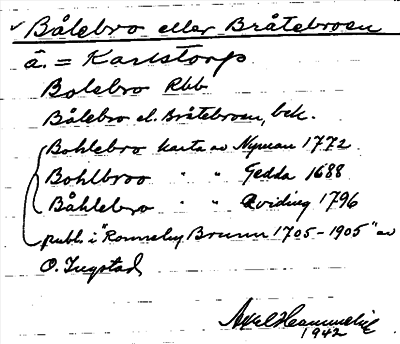 ✓ Bålebro eller Bråtebroen
ä. = Karlstorp
Bolebro Rbb
Bålebro el. Bråtebroen, bek.
Bohlebro karta av Nyman 1772
Bohlbroo " " Gedda 1688
Båhlebro " " Qviding 1796
publ. i "Ronneby Brunn 1705-1905" av
O. Ingstad
1942